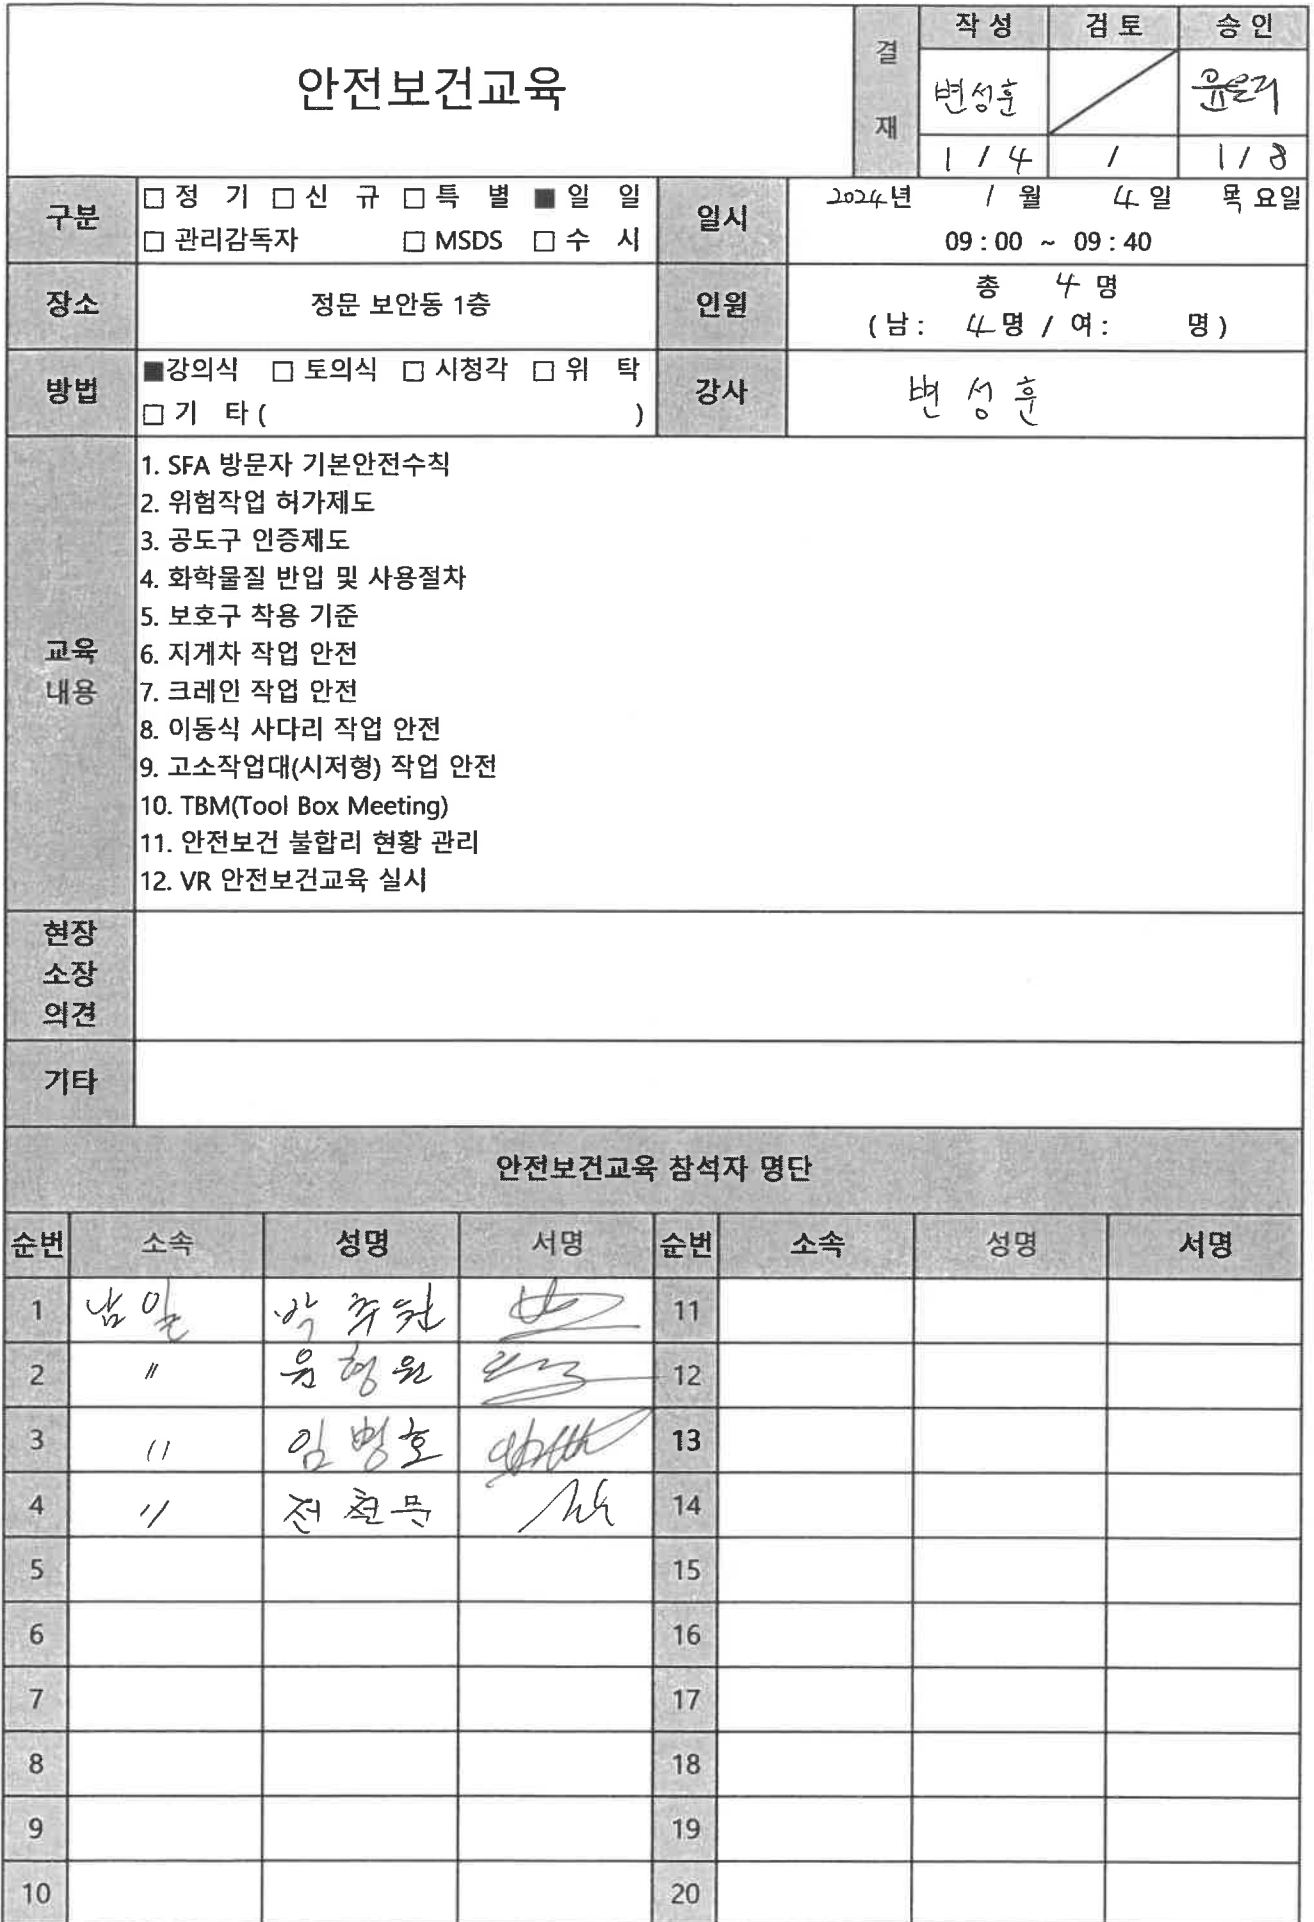 안전보건교육
결재
작 성 검 토 승 인
변성훈
1 / 4 / 1 / 8
구분
□ 정 기 □ 신 규 □ 특 별 ■ 일 일
□ 관리감독자 □ MSDS □ 수 시
일시
2024년 1 월 4 일 목 요일
09 : 00 ~ 09 : 40
장소
정문 보안동 1층
인원
총 4 명
( 남 : 4 명 / 여 : 명 )
방법
■강의식 □ 토의식 □ 시청각 □ 위 탁
□ 기 타 ( )
강사
변 성 훈
교육
내용
1. SFA 방문자 기본안전수칙
2. 위험작업 허가제도
3. 공도구 인증제도
4. 화학물질 반입 및 사용절차
5. 보호구 착용 기준
6. 지게차 작업 안전
7. 크레인 작업 안전
8. 이동식 사다리 작업 안전
9. 고소작업대(시저형) 작업 안전
10. TBM(Tool Box Meeting)
11. 안전보건 불합리 현황 관리
12. VR 안전보건교육 실시
현장
소장
의견
기타
안전보건교육 참석자 명단
순번 소속 성명 서명 순번 소속 성명 서명
1 남일 박주원 11
2 〃 음형원 12
3 〃 임병호 13
4 〃 전 14
5 15
6 16
7 17
8 18
9 19
10 20